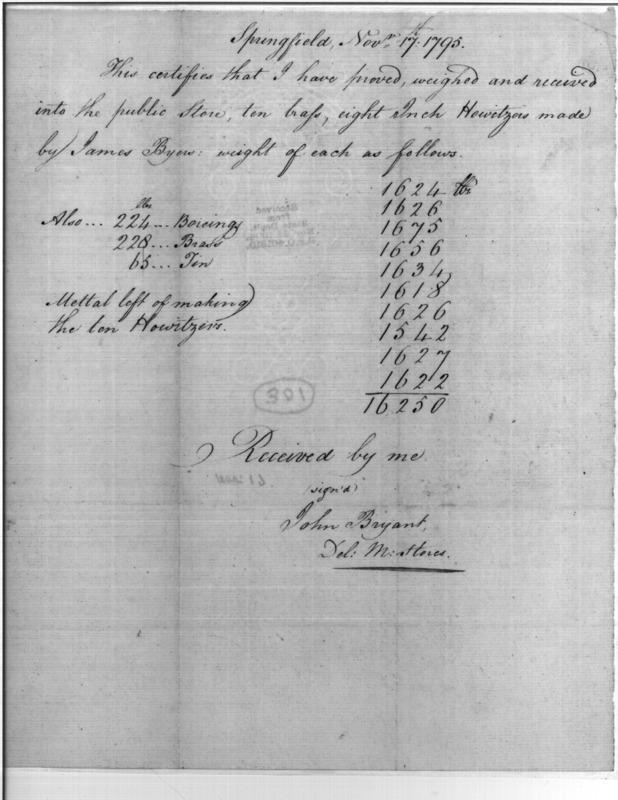 Springfield, Novr. 17. 1795.
This certifies that I have proved, weighed and received
into the public Store, ten brass, eight Inch Howitzers made
by James Byers: weight of each as follows.
1624 lbs
1626
1675
1656
1634
1618
1626
1542
1627
1622
16250
lbs
Also... 224... Boreings
228... Brass
65... Tin
Mettal left of making
the ten Howitzers.
Received by me
(sign'd)
John Bryant,
Del: M: Stores.